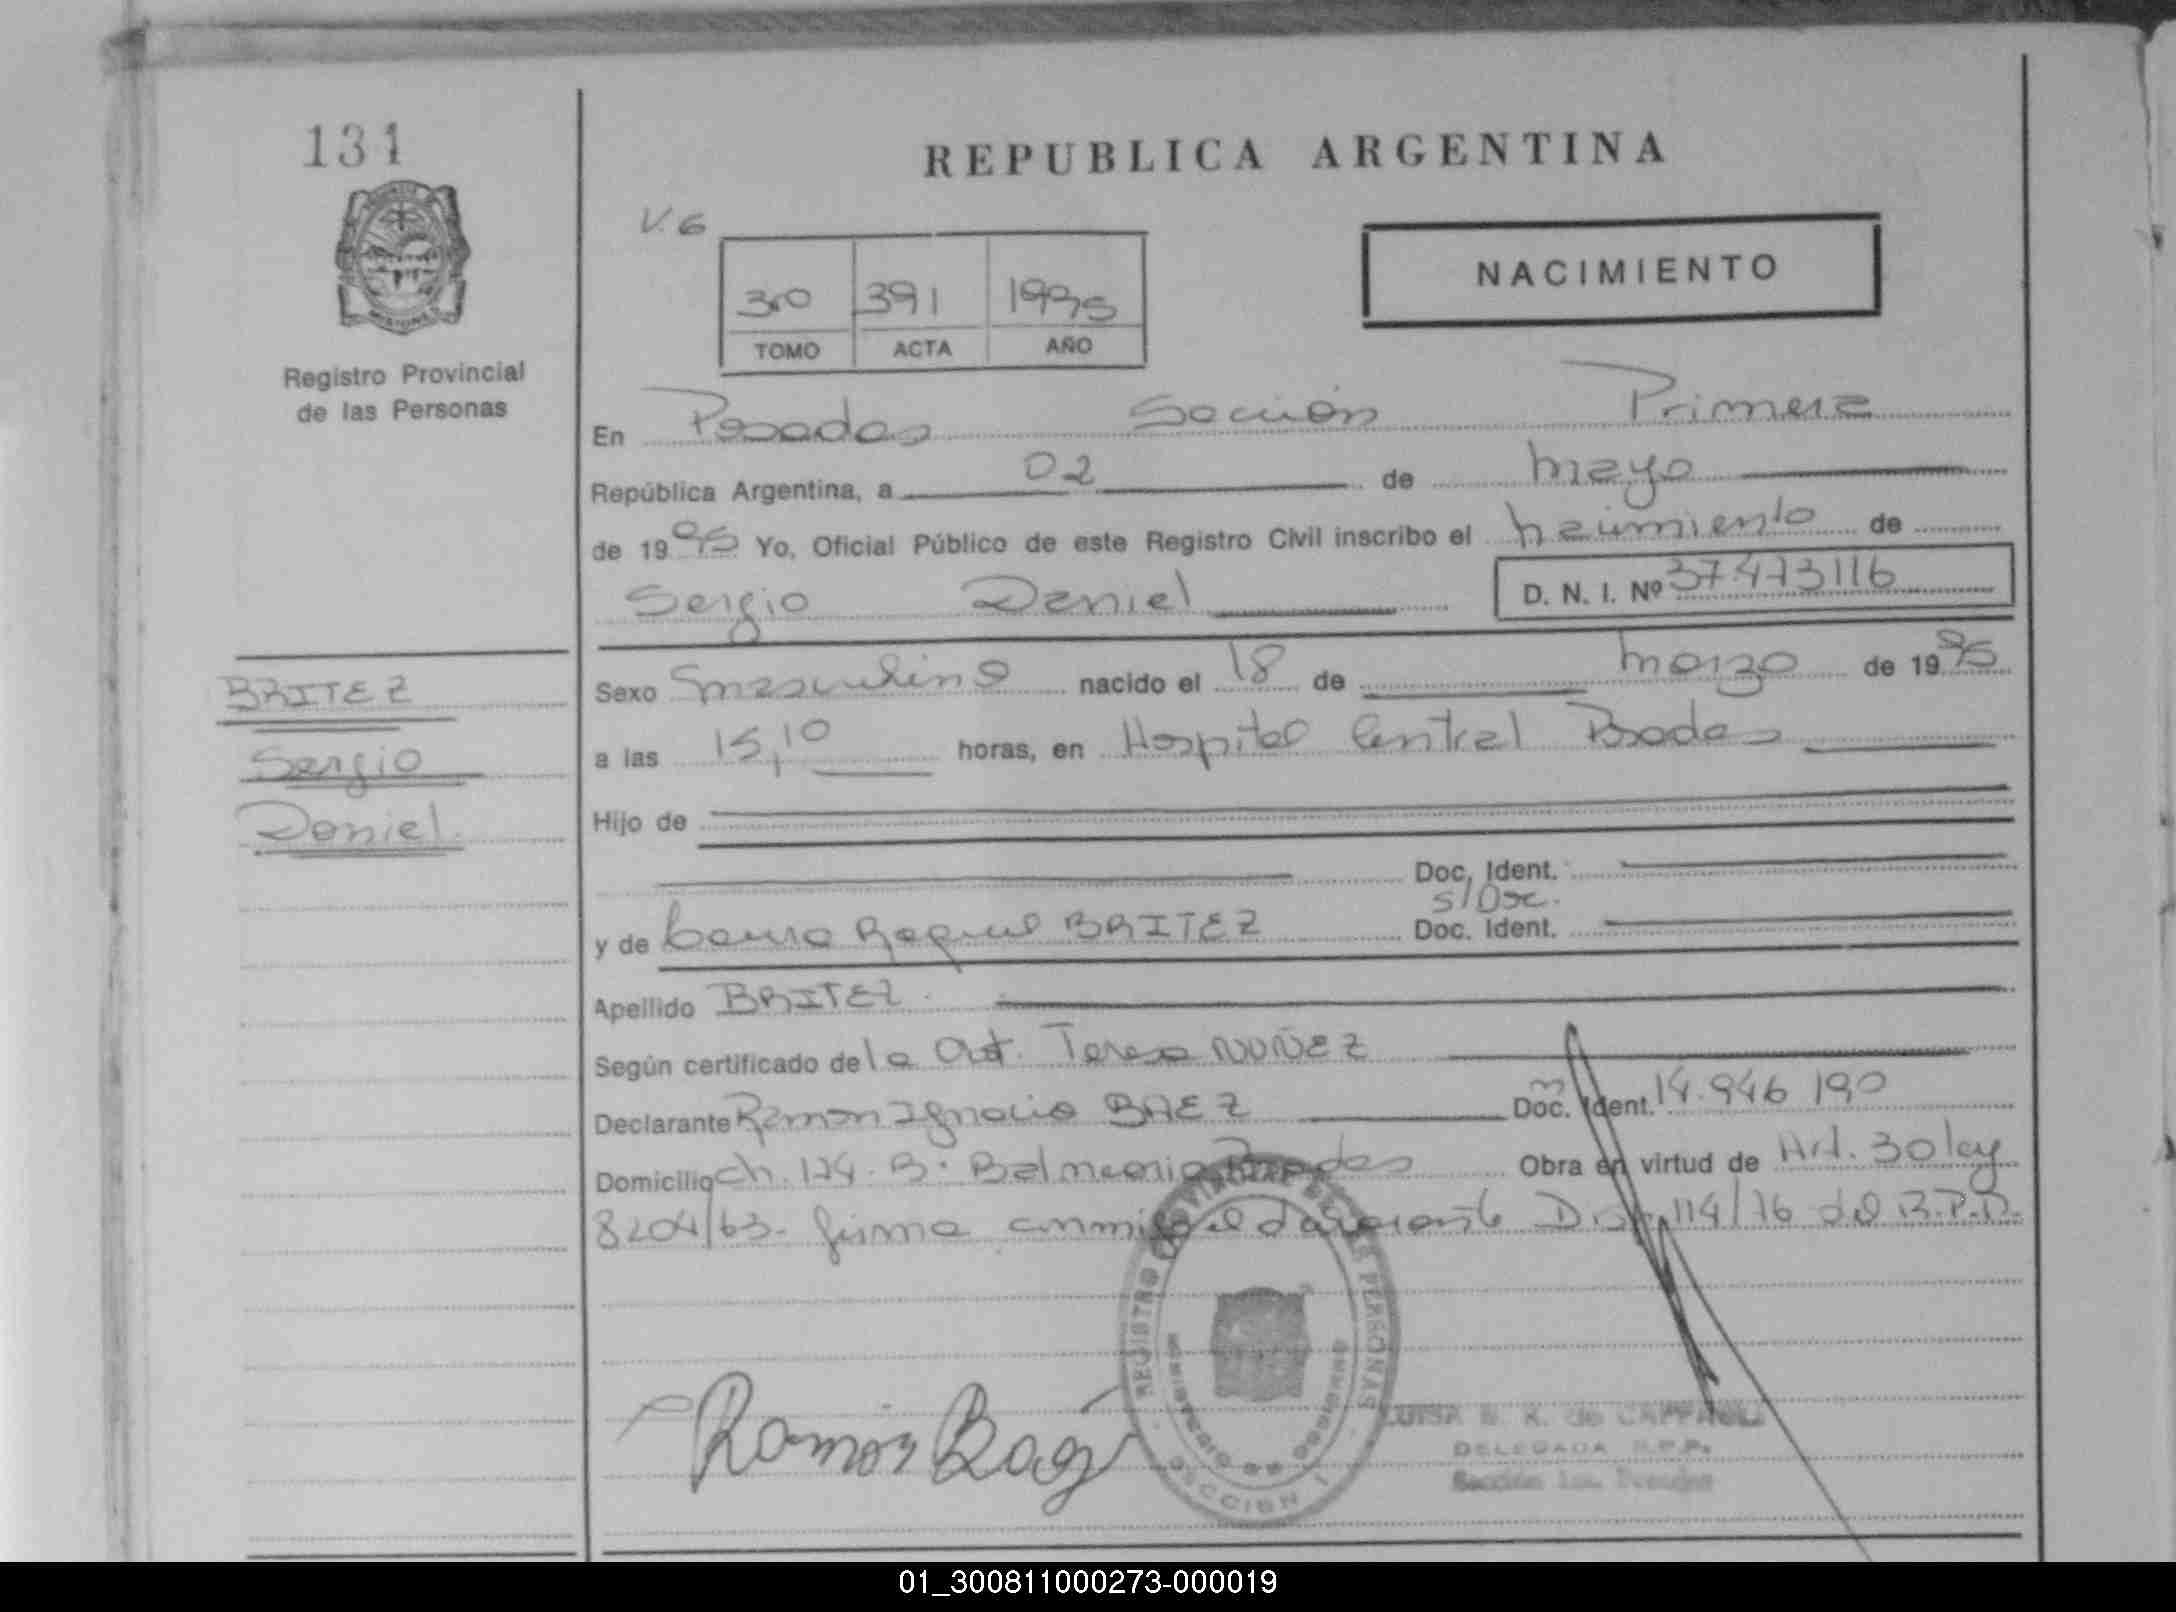 131
REPUBLICA ARGENTINA
V. 6
NACIMIENTO
30 391 1995
TOMO ACTA AÑO
Registro Provincial
de las Personas
En Posadas Sección Primera
República Argentina, a 02 de mayo
de 1995 Yo, Oficial Público de este Registro Civil inscribo el nacimiento de
Sergio Daniel D. N. I. Nº 37.473116
BRITEZ
Sergio
Daniel
Sexo masculino nacido el 18 de marzo de 1995
a las 15,10 horas, en Hospital Central Posadas
Hijo de
Doc. Ident.
s/Doc.
y de Raquel BRITEZ Doc. Ident.
Apellido BRITEZ
Según certificado de la Obst. Teresa NUÑEZ
Declarante Ramon Ignacio BAEZ Doc. Ident. 14.946 190
Domicilio Ch. 124. B. Balneario Posadas Obra en virtud de Art. 30 ley
8204/63. firma conmigo el declarante Disp. 114/76 del R.P.P.
REGISTRO PROVINCIAL DE LAS PERSONAS
MINISTERIO DE GOBIERNO
SECCION 1
Ramón Baez
LUISA
DELEGADA R.P.P.
01_300811000273-000019